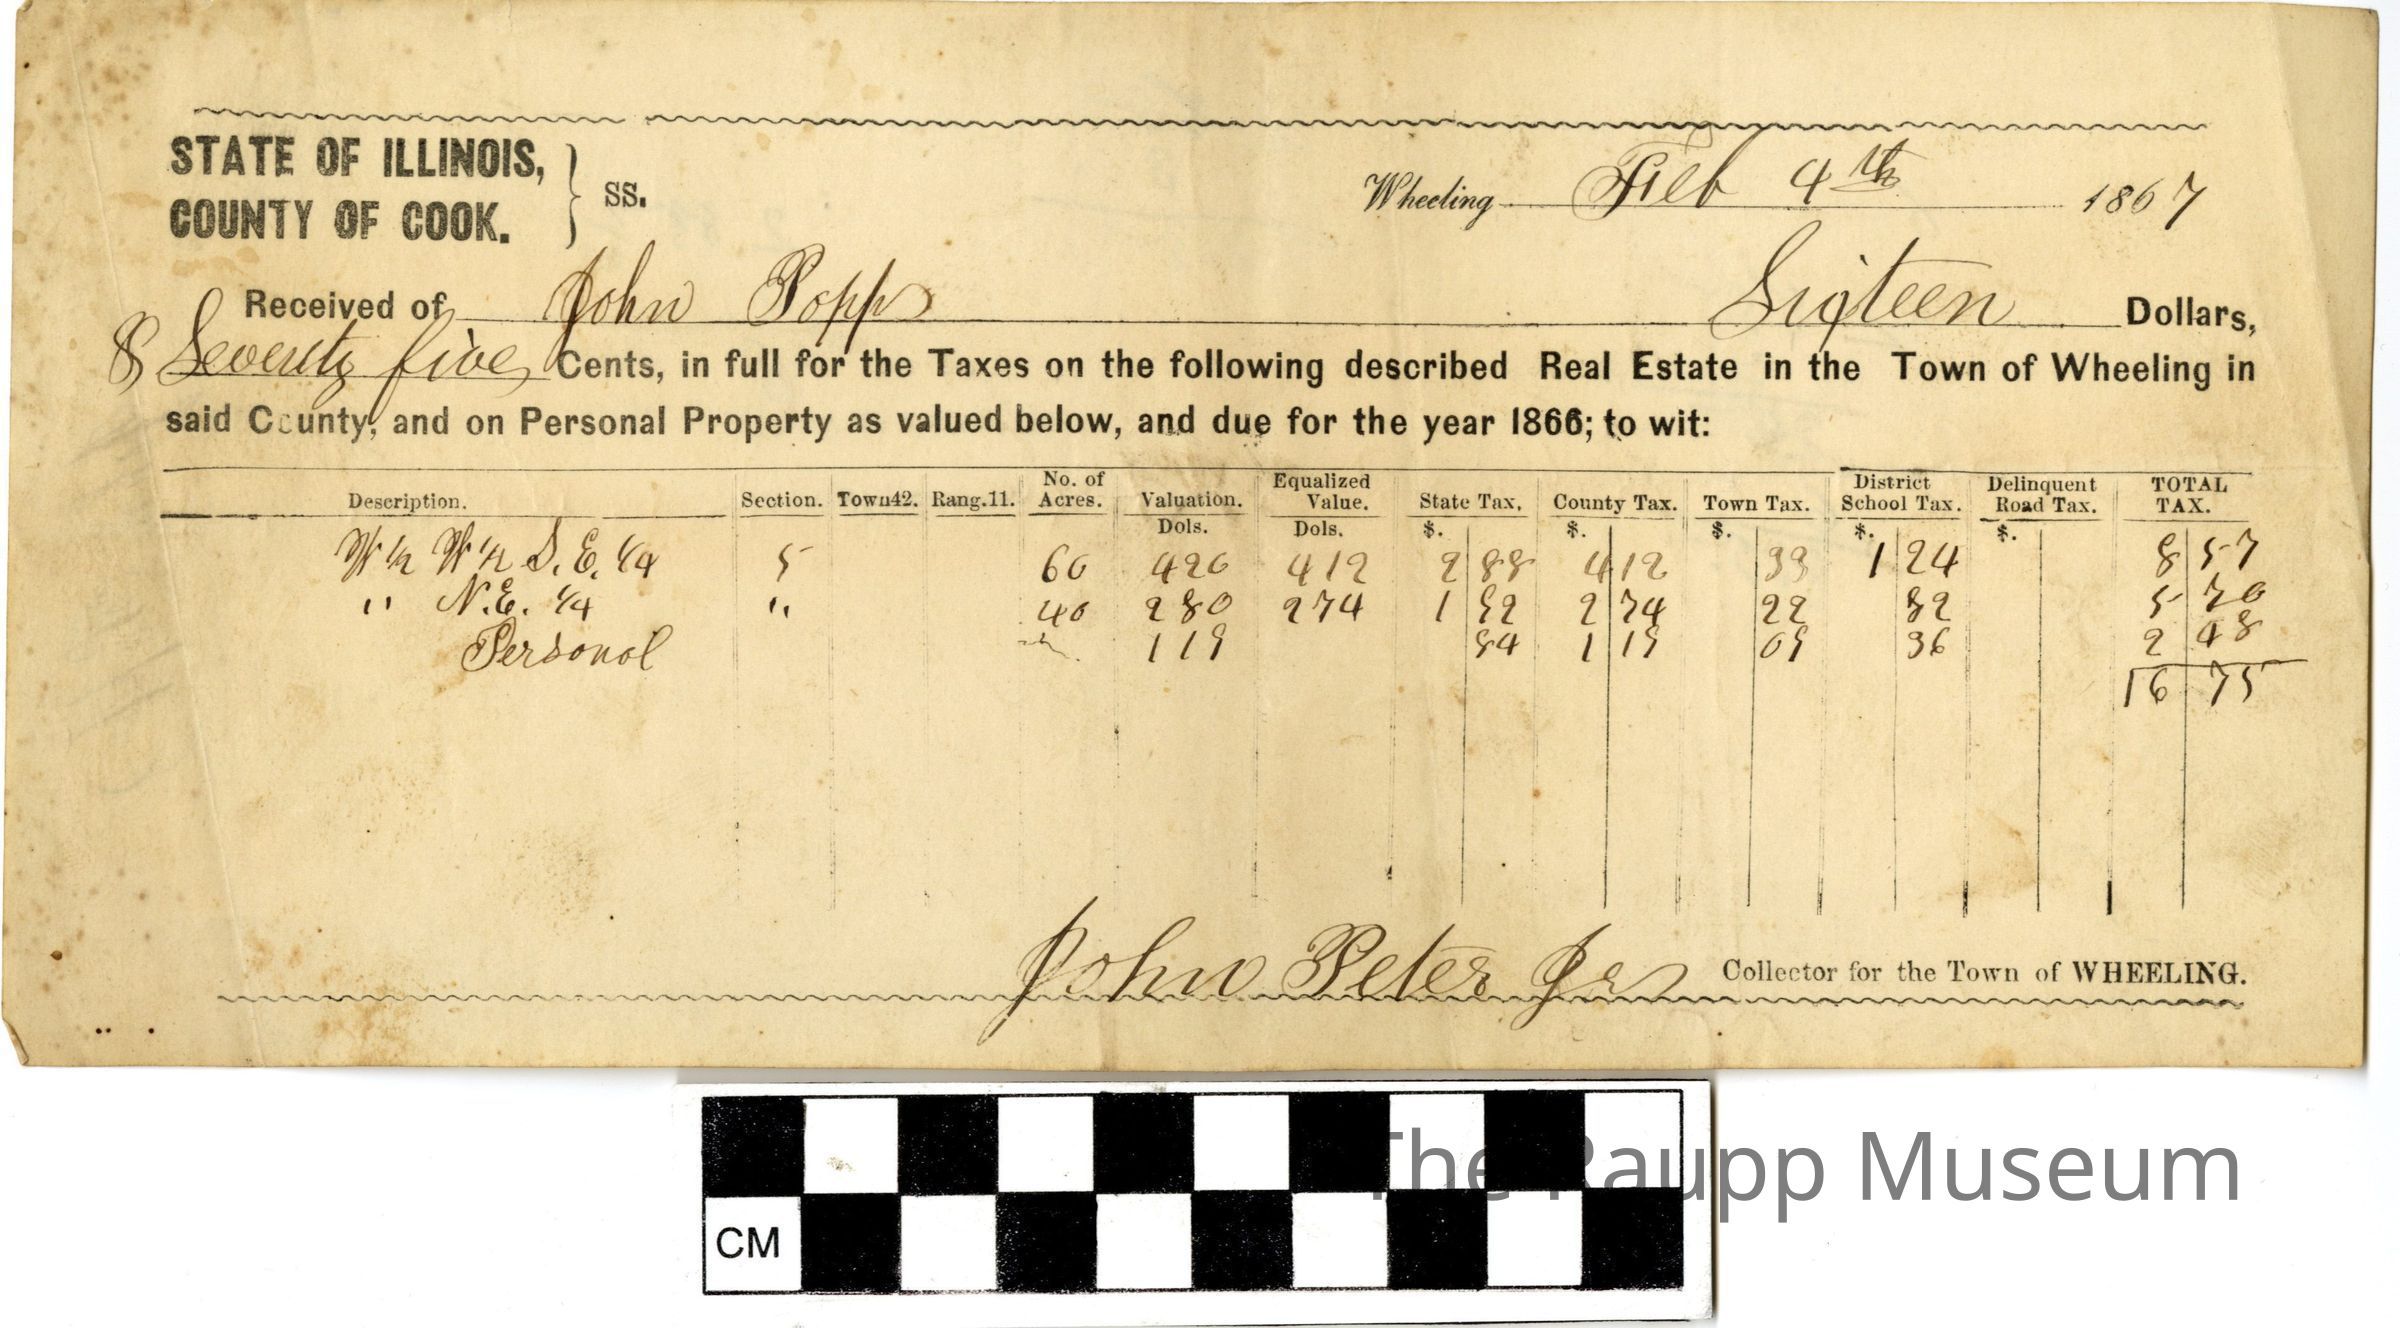 STATE OF ILLINOIS, COUNTY OF COOK. } ss.
Wheeling Feb 4th 1867
Received of John Popp Sixteen Dollars,
& Seventy five Cents, in full for the Taxes on the following described Real Estate in the Town of Wheeling in
said County, and on Personal Property as valued below, and due for the year 1866; to wit:
Description. Section. Town 42. Rang. 11. No. of Acres. Valuation. Equalized Value. State Tax. County Tax. Town Tax. District School Tax. Delinquent Road Tax. TOTAL TAX.
Dols. Dols. $. $. $. $. $.
W 1/2 W 1/2 S.E. 1/4 5 60 420 412 2 88 4 12 33 1 24 8 57
" N.E. 1/4 " 40 280 274 1 92 2 74 22 82 5 70
Personal 119 84 1 19 09 36 2 48
16 75
John Peter Jr Collector for the Town of WHEELING.
CM
The Raupp Museum